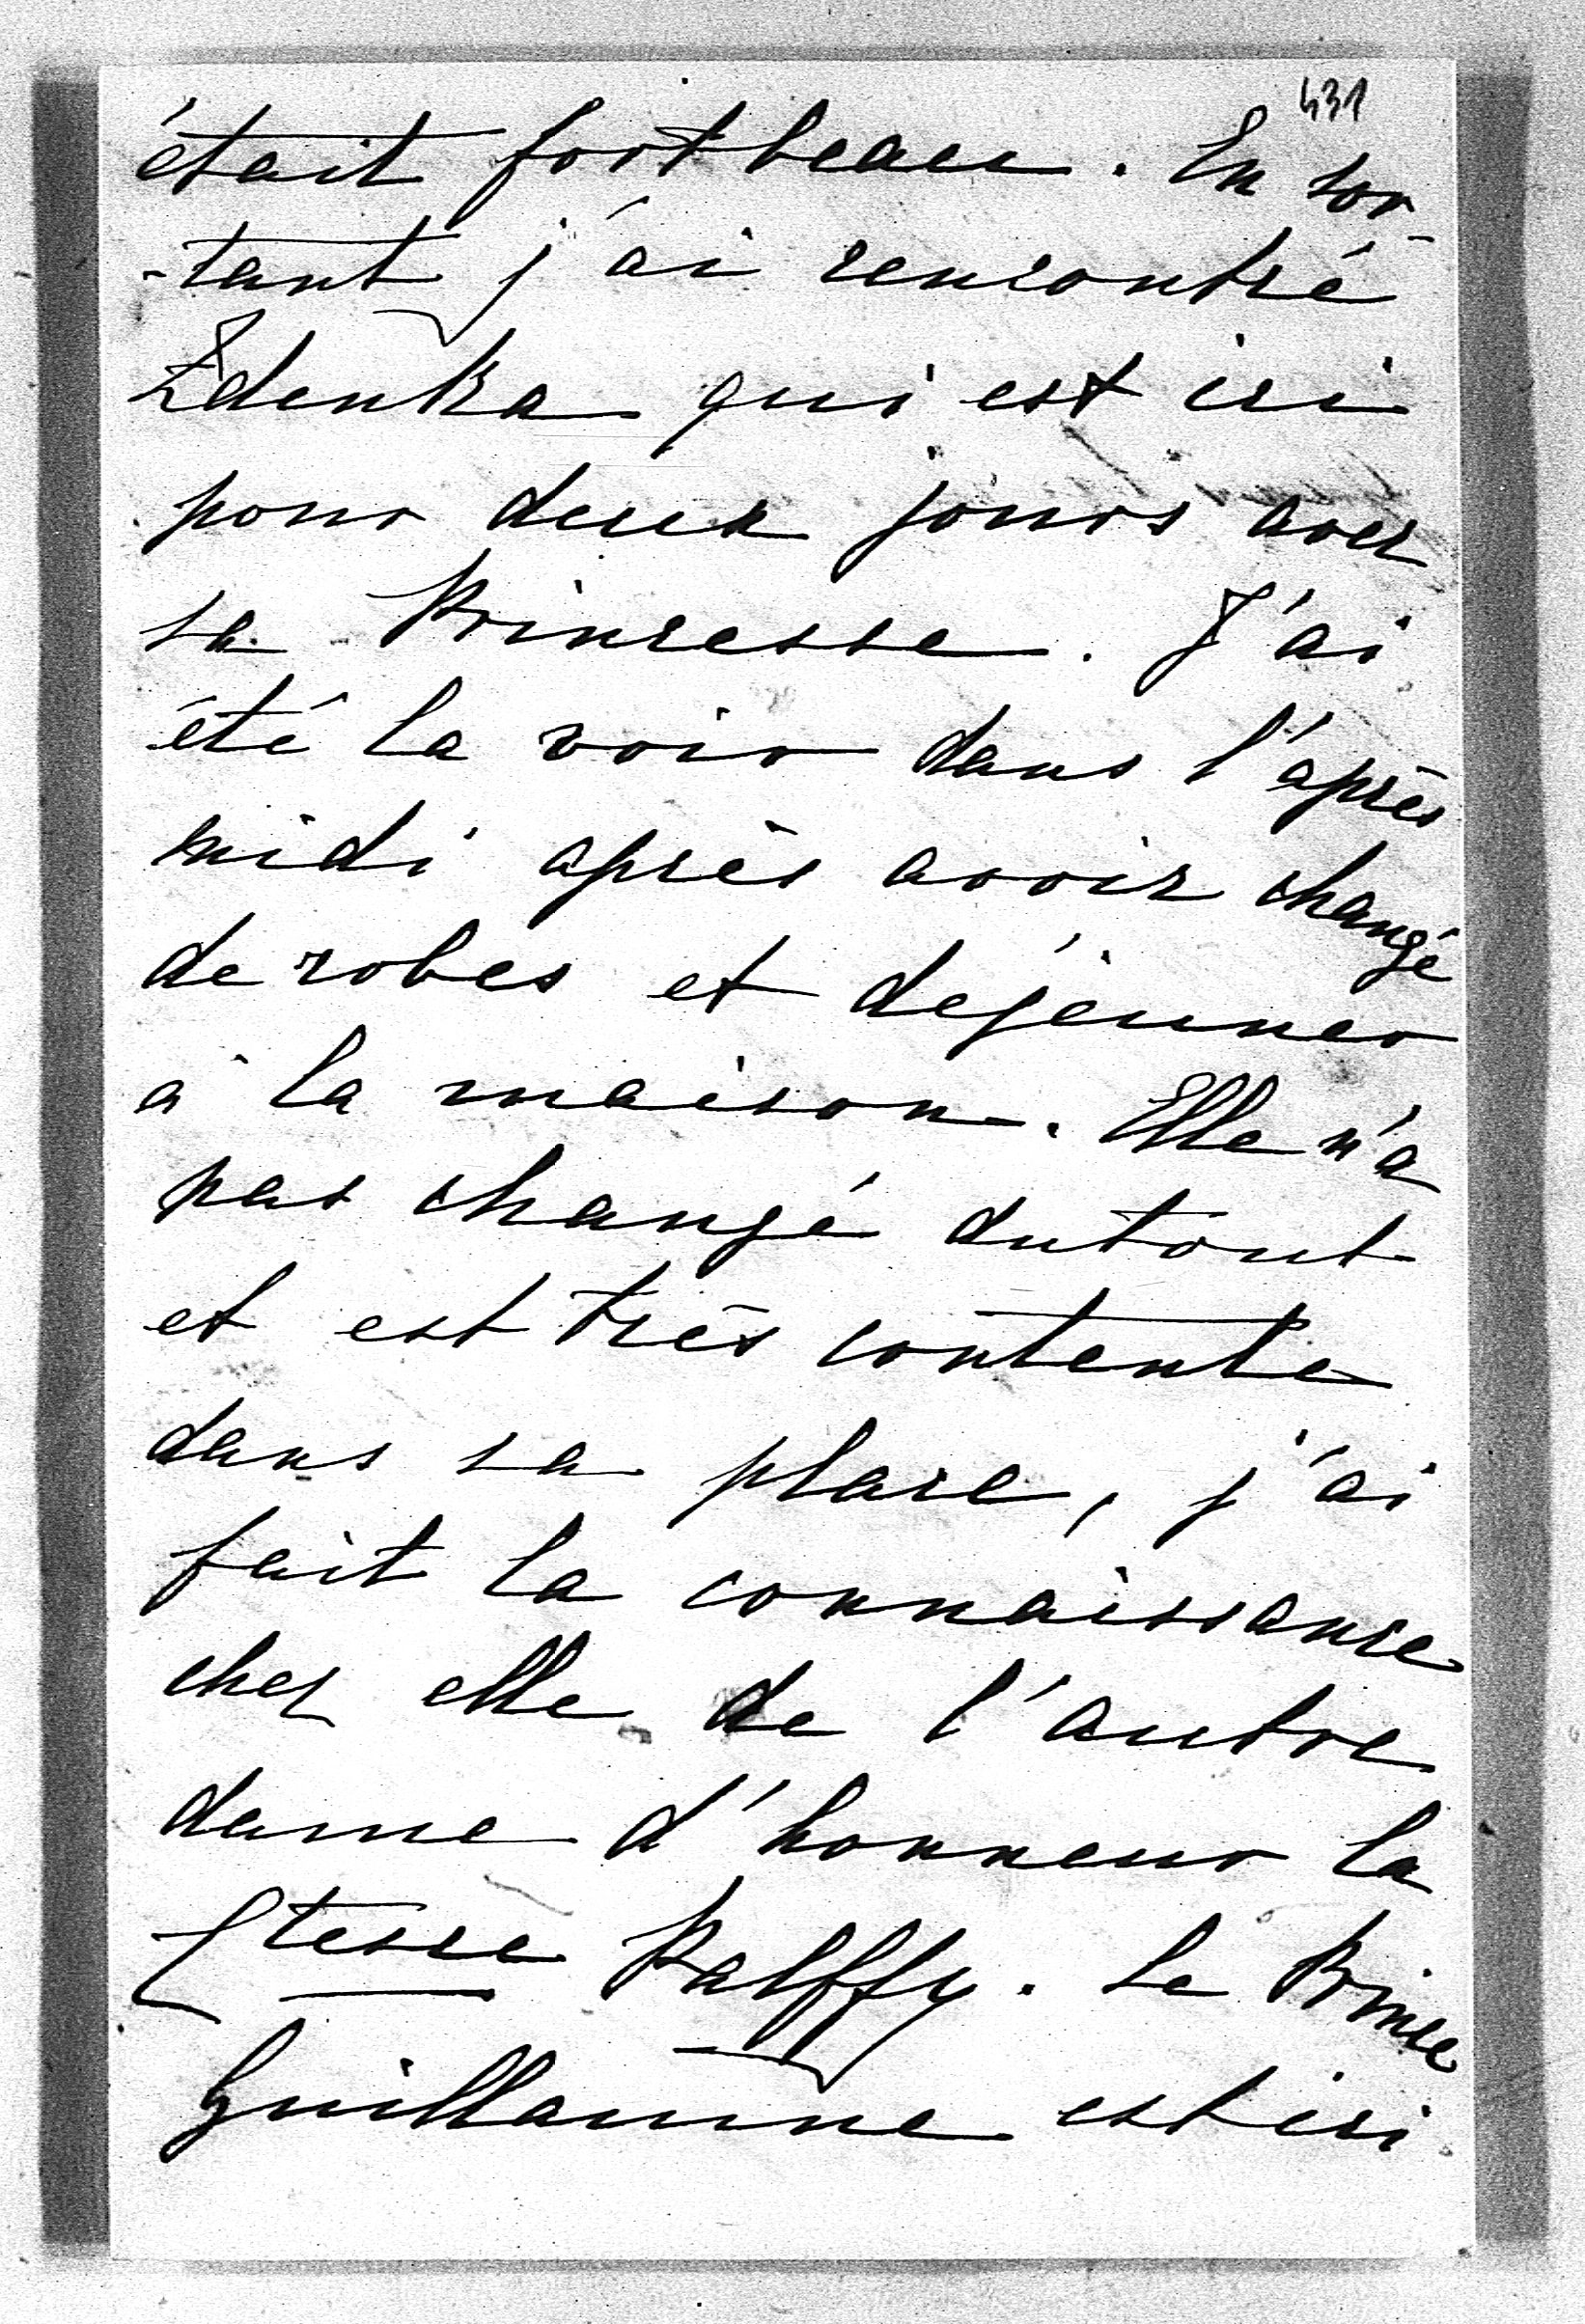 431
était fort beau. En sor-
-tant j'ai rencontré
Zdenka qui est ici
pour deux jours avec
sa Princesse. J'ai
été la voir dans l'après
midi après avoir changé
de robes et dejeuner
à la maison. Elle n'a
pas changé dutout
et est très contente
dans sa place, j'ai
fait la connaissance
chez elle de l'autre
dame d'honneur la
Ctesse Palffy. Le Prince
Guillaume est ici